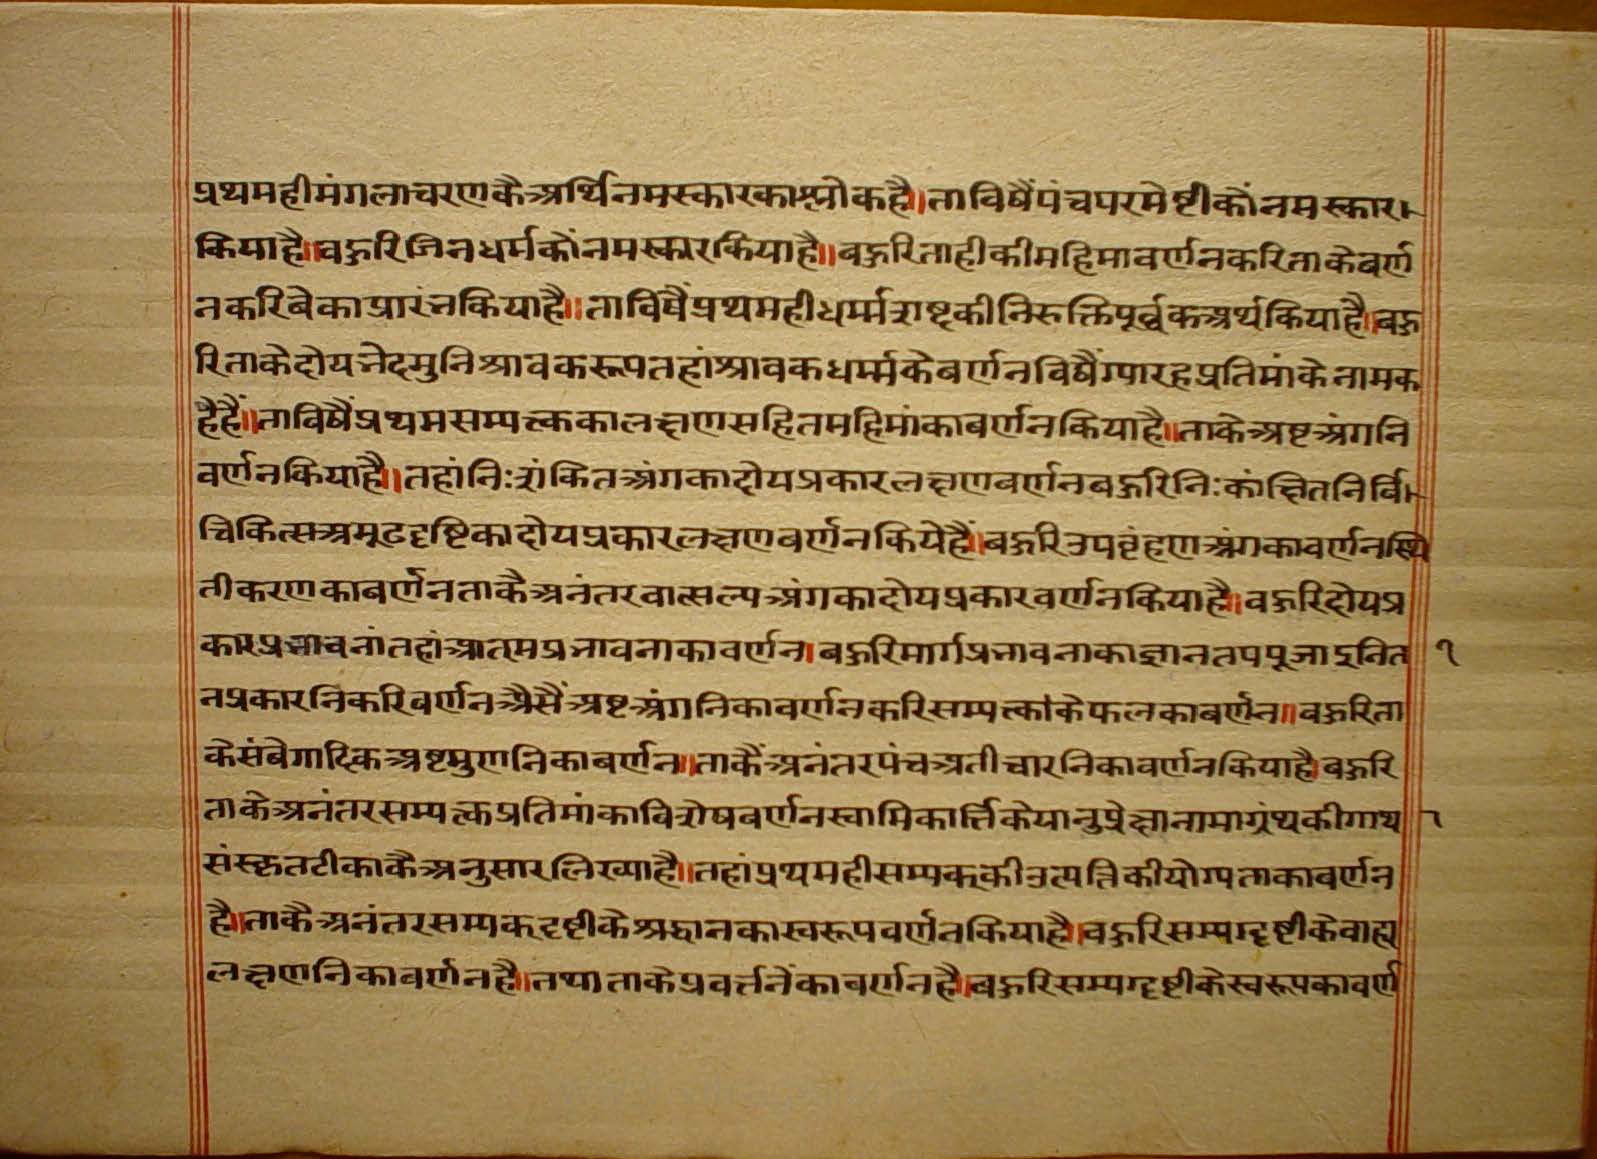 प्रथमहीमंगलाचरणकैअर्थिनमस्कारकाश्लोकहै॥ताविषैंपंचपरमेष्टीकोंनमस्कार
कियाहै॥बहुरिजिनधर्मकोंनमस्कारकियाहै॥बहुरिताहीकीमहिमावर्णनकरिताकेबर्ण
नकरिबेकाप्रारंभकियाहै॥ताविषैंप्रथमहीधर्म्मशब्दकीनिरुक्तिपूर्व्वकअर्थकियाहै॥बहु
रिताकेदोयभेदमुनिश्रावकरूपतहांश्रावकधर्म्मकेबर्णनविषैंग्यारहप्रतिमांकेनामक
हेहैं॥ताविषैंप्रथमसम्यक्त्वकालक्षणसहितमहिमांकाबर्णनकियाहै॥ताकेअष्टअंगनि
वर्णनकियाहै॥तहांनिःशंकितअंगकादोयप्रकारलक्षणबर्णनबहुरिनिःकांक्षितनिर्वि
चिकित्सअमूढदृष्टिकादोयप्रकारलक्षणबर्णनकियेहैं॥बहुरिउपबृंहणअंगकावर्णनस्थि
तीकरणकाबर्णनताकैअनंतरवात्सल्यअंगकादोयप्रकारवर्णनकियाहै॥बहुरिदोयप्र
कारप्रभावनांतहांआतमप्रभावनाकावर्णन।बहुरिमार्गप्रभावनाकाज्ञानतपपूजाइनित १
नप्रकारनिकरिवर्णनअैसैंअष्टअंगनिकावर्णनकरिसम्यक्त्वकेफलकाबर्णन॥बहुरिता
केसंबेगादिकअष्टगुणनिकाबर्णन॥ताकैंअनंतरपंचअतीचारनिकावर्णनकियाहै।बहुरि
ताकेअनंतरसम्यक्त्वप्रतिमांकाविशेषबर्णनस्वामिकार्त्तिकेयानुप्रेक्षानामाग्रंथकीगाथा
संस्कृतटीकाकैअनुसारलिख्याहै॥तहांप्रथमहीसम्यक्कीउत्पत्तिकीयोग्यताकाबर्णन
है॥ताकैअनंतरसम्यक्दृष्टीकेश्रद्धानकास्वरूपवर्णनकियाहै॥बहुरिसम्यग्दृष्टीकेवाह्य
लक्षणनिकावर्णनहै॥तथाताकेप्रवर्त्तनेंकावर्णनहै॥बहुरिसम्यग्दृष्टीकेस्वरूपकावर्ण